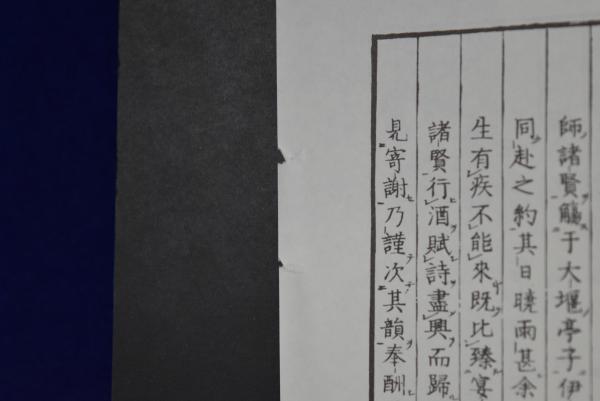 師諸賢觴于大堰亭子伊
同赴之約其日曉雨甚余
生有疾不能來既比臻宴
諸賢行酒賦詩盡興而歸
見寄謝乃謹次其韻奉酬